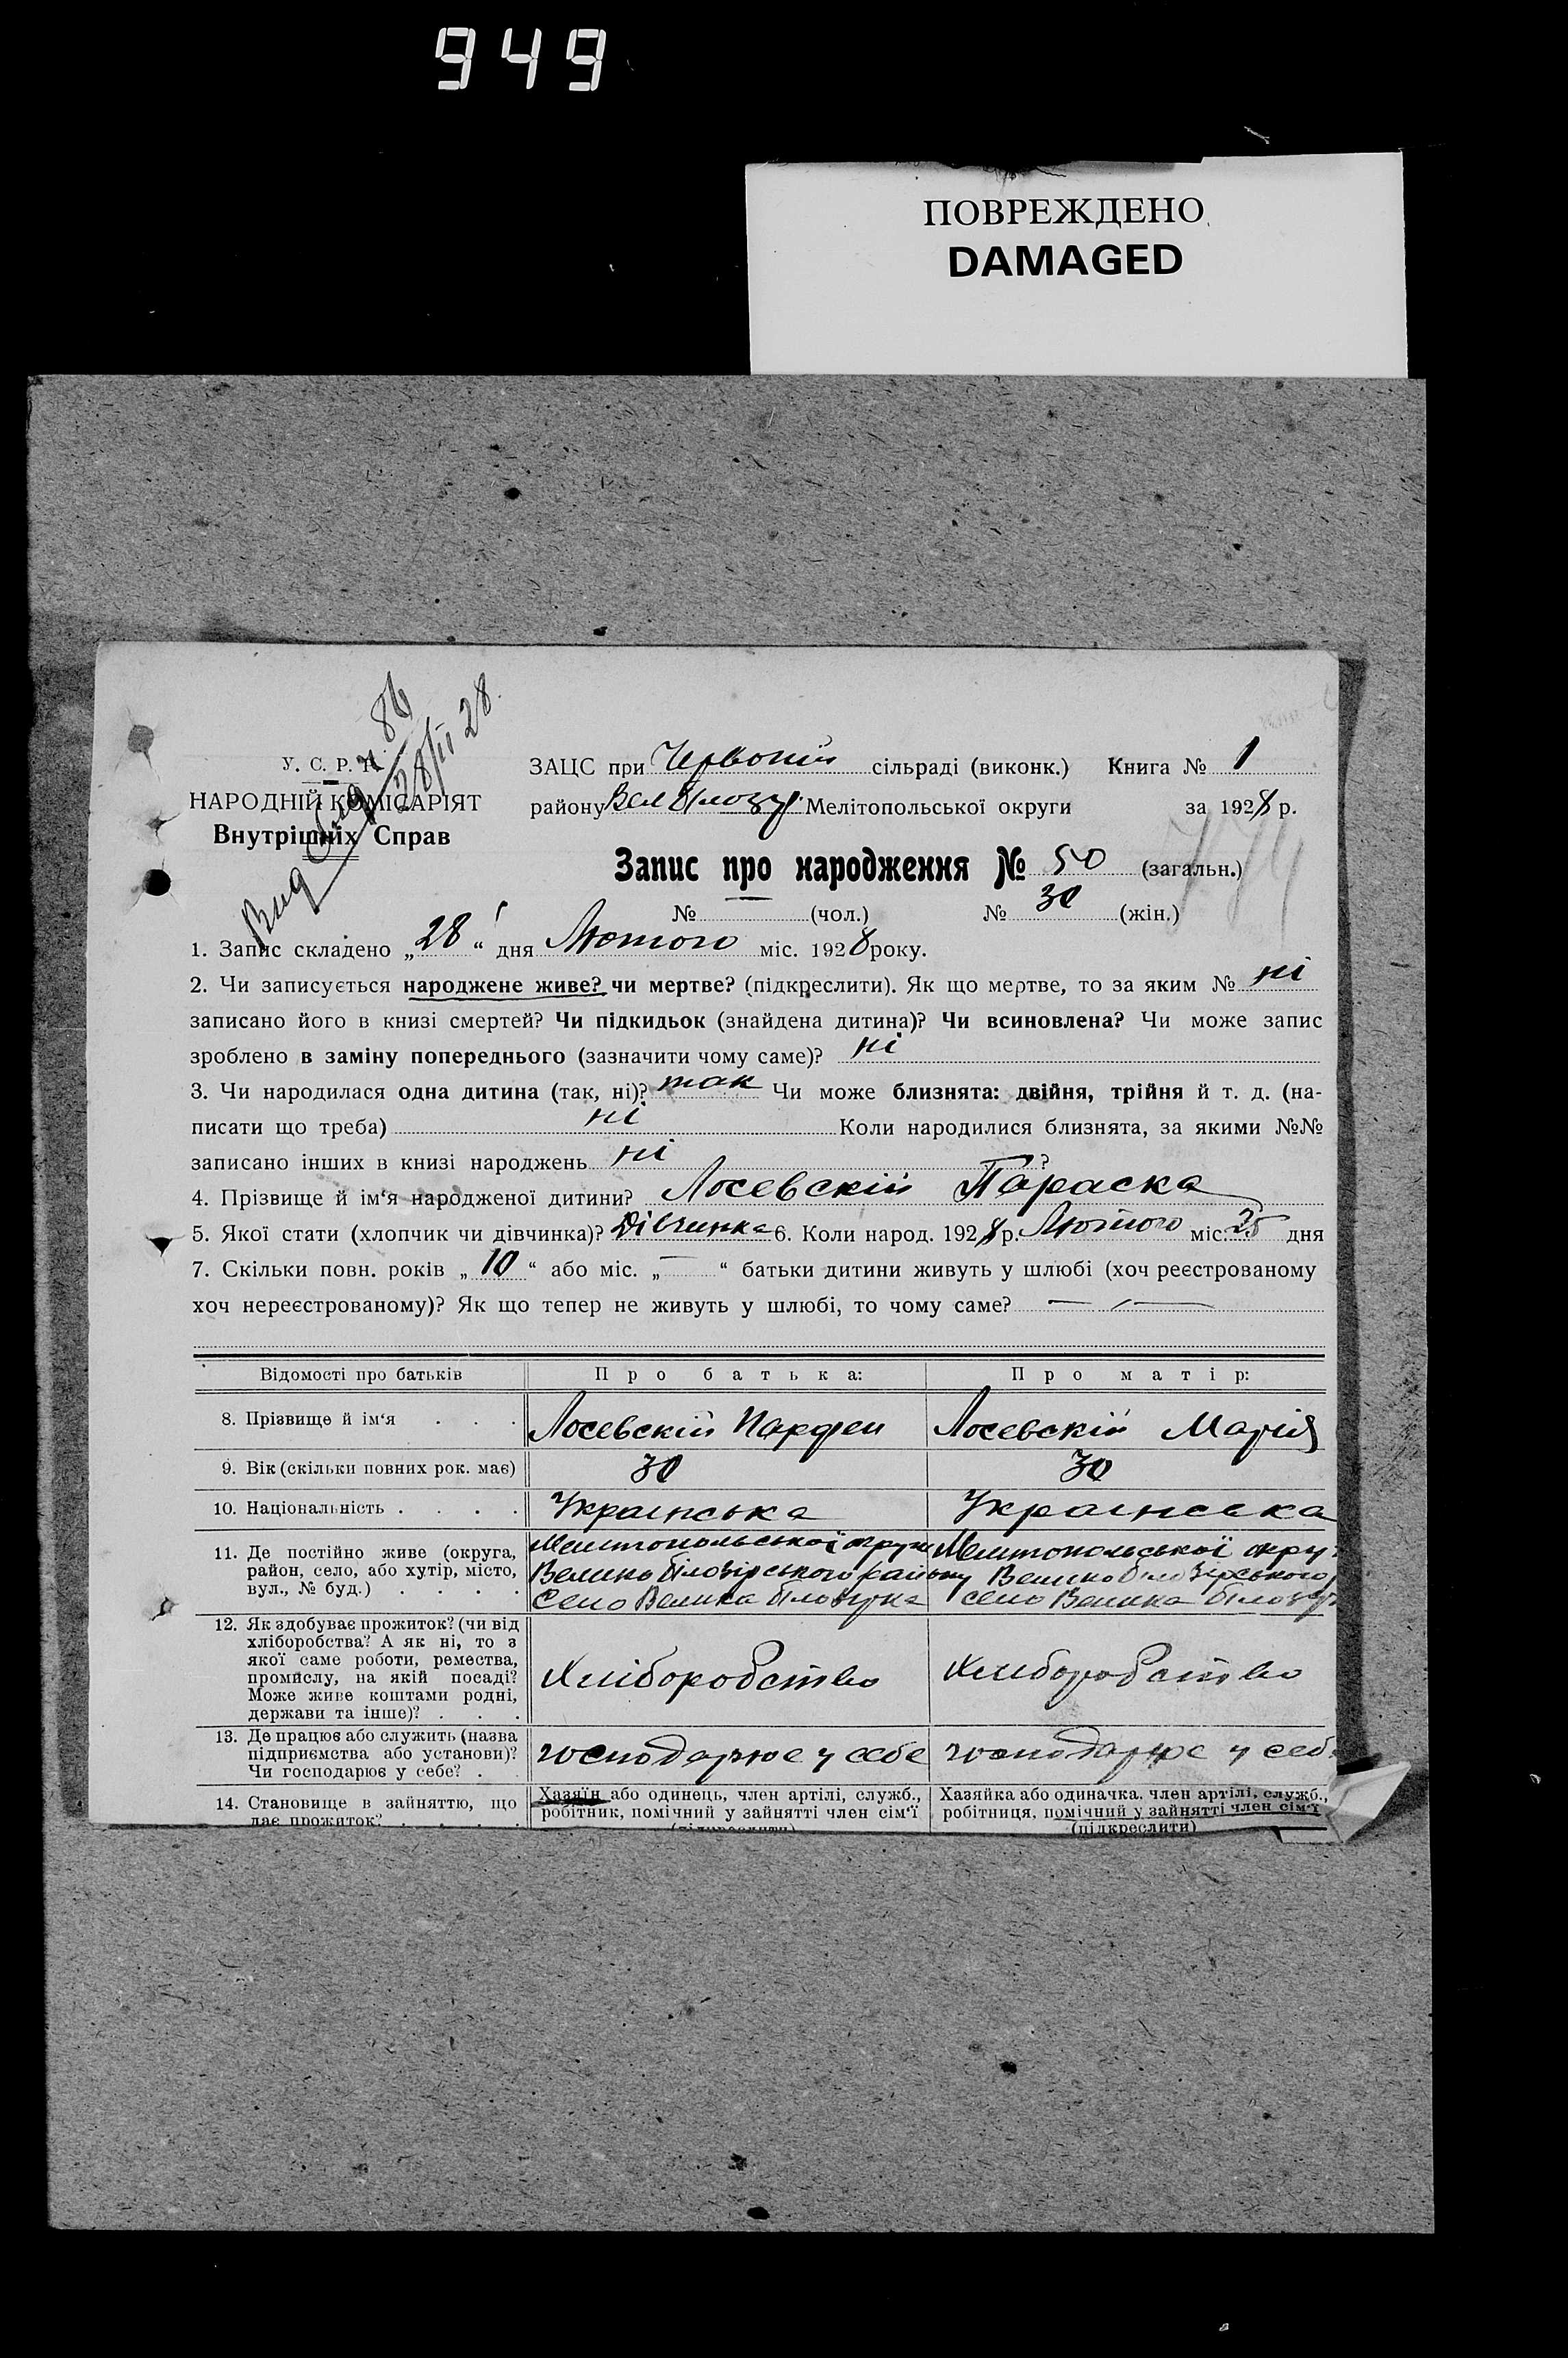 949
ПОВРЕЖДЕНО
DAMAGED
У. С. Р. Р.
НАРОДНІЙ КОМІСАРІЯТ
Внутрішніх Справ
86
28/II 28.
ЗАЦС при Червоній сільраді (виконк.) Книга № 1
району Вел Білозур. Мелітопольської округи за 1928 р.
Запис про народження № 50 (загальн.)
№ (чол.) № 30 (жін.)
1. Запис складено „28“ дня Лютого міс. 1928 року.
2. Чи записується народжене живе? чи мертве? (підкреслити). Як що мертве, то за яким № ні
записано його в книзі смертей? Чи підкидьок (знайдена дитина)? Чи всиновлена? Чи може запис
зроблено в заміну попереднього (зазначити чому саме)? ні
3. Чи народилася одна дитина (так, ні)? так Чи може близнята: двійня, трійня й т. д. (на-
писати що треба) ні Коли народилися близнята, за якими №№
записано інших в книзі народжень ні ?
4. Прізвище й ім‘я народженої дитини? Лосевскій Параска
5. Якої стати (хлопчик чи дівчинка)? Дівчинка 6. Коли народ. 1928 р. Лютого міс. 25 дня
7. Скільки повн. років „10“ або міс. „—“ батьки дитини живуть у шлюбі (хоч реєстрованому
хоч нереєстрованому)? Як що тепер не живуть у шлюбі, то чому саме? — —
Відомості про батьків Про батька: Про матір:
8. Прізвище й ім‘я . . . Лосевскій Парфен Лосевскій Марія
9. Вік (скільки повних рок. має) 30 30
10. Національність . . . . Українська Українська
11. Де постійно живе (округа, Мелітопольської округи Мелітопольської окру
район, село, або хутір, місто, Велико білозірського району Велико білозірського
вул., № буд.) . . . . Село Велика білозірка село Велика
12. Як здобуває прожиток? (чи від
хліборобства? А як ні, то з
якої саме роботи, ремества,
промислу, на якій посаді? Хліборобство Хліборобство
Може живе коштами родні,
держави та інше)? . . .
13. Де працює або служить (назва
підприємства або установи)? господарює у себе господарює у себе
Чи господарює у себе? .
14. Становище в зайняттю, що Хазяїн або одинець, член артілі, служб., Хазяйка або одиначка, член артілі, служб.,
дає прожиток? . . . . робітник, помічний у зайнятті член сім‘ї робітниця, помічний у зайнятті член сім‘ї
(підкреслити) (підкреслити)